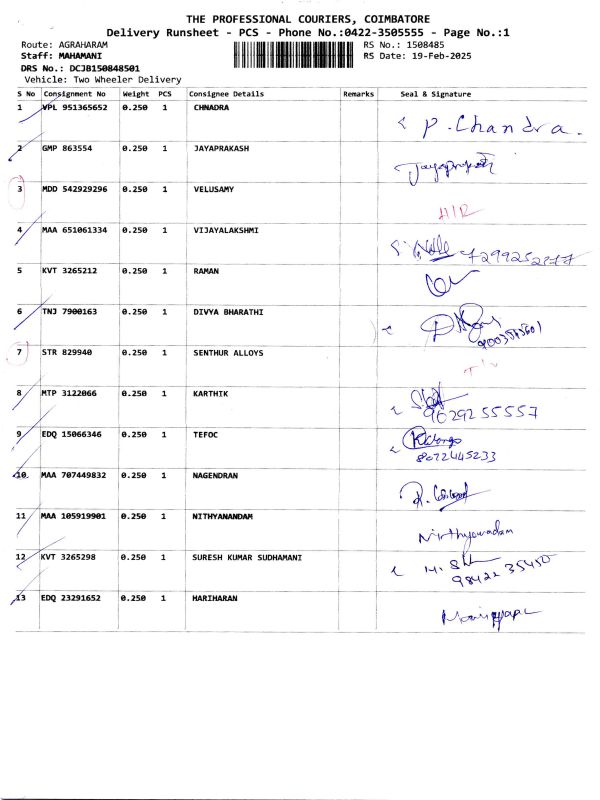 THE PROFESSIONAL COURIERS, COIMBATORE
Delivery Runsheet - PCS - Phone No.:0422-3505555 - Page No.:1
Route: AGRAHARAM RS No.: 1508485
Staff: MAHAMANI RS Date: 19-Feb-2025
DRS No.: DCJB150848501
Vehicle: Two Wheeler Delivery
S No Consignment No Weight PCS Consignee Details Remarks Seal & Signature
1 VPL 951365652 0.250 1 CHNADRA P. Chandra.
2 GMP 863554 0.250 1 JAYAPRAKASH Jayaprakash
3 MDD 542929296 0.250 1 VELUSAMY
4 MAA 651061334 0.250 1 VIJAYALAKSHMI
5 KVT 3265212 0.250 1 RAMAN
6 TNJ 7900163 0.250 1 DIVYA BHARATHI
7 STR 829940 0.250 1 SENTHUR ALLOYS
8 MTP 3122066 0.250 1 KARTHIK
9629255557
9 EDQ 15066346 0.250 1 TEFOC
8072445233
10 MAA 707449832 0.250 1 NAGENDRAN
11 MAA 105919901 0.250 1 NITHYANANDAM
12 KVT 3265298 0.250 1 SURESH KUMAR SUDHAMANI
98422 35450
13 EDQ 23291652 0.250 1 HARIHARAN